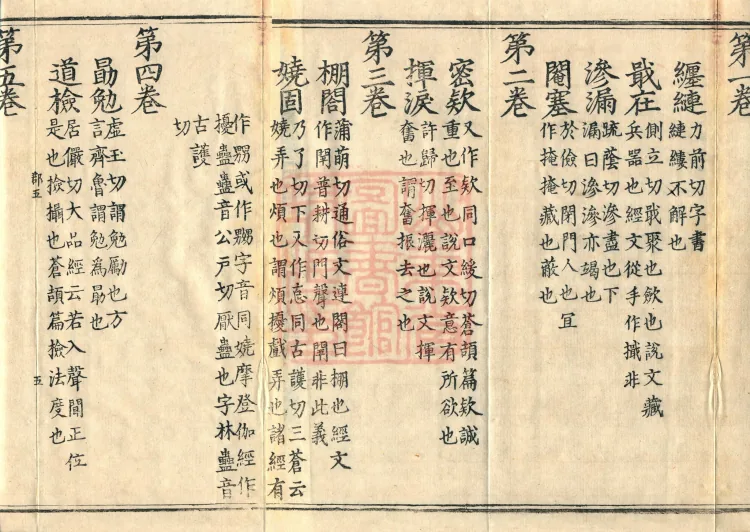 第一卷
纏縺 力前切字書
縺縷不解也
戢在 側立切戢聚也斂也說文藏
兵器也經文從手作擑非
滲漏 疏蔭切滲盡也下
漏曰滲滲亦竭也
閹塞 於儉切閉門人也宜
作掩掩藏也蔽也
第二卷
密欵 又作欵同口緩切蒼頡篇欵誠
重也至也說文欵意有所欲也
揮淚 許歸切揮灑也說文揮
奮也謂奮振去之也
第三卷
棚閣 蒲萌切通俗文連閣曰棚也經文
作閞普耕切門聲也閞非此義
嬈固 乃了切下又作怘同古護切三蒼云
嬈弄也煩也謂煩擾戲弄也諸經有
作嬲或作嬲字音同嬈摩登伽經作
擾蠱蠱音公戶切厭蠱也字林蠱音
古護
切
第四卷
勗勉 虛玉切謂勉勵也方
言齊魯謂勉為勗也
道檢 居儼切大品經云若入聲聞正位
是也撿攝也蒼頡篇撿法度也
郡五 五
第五卷